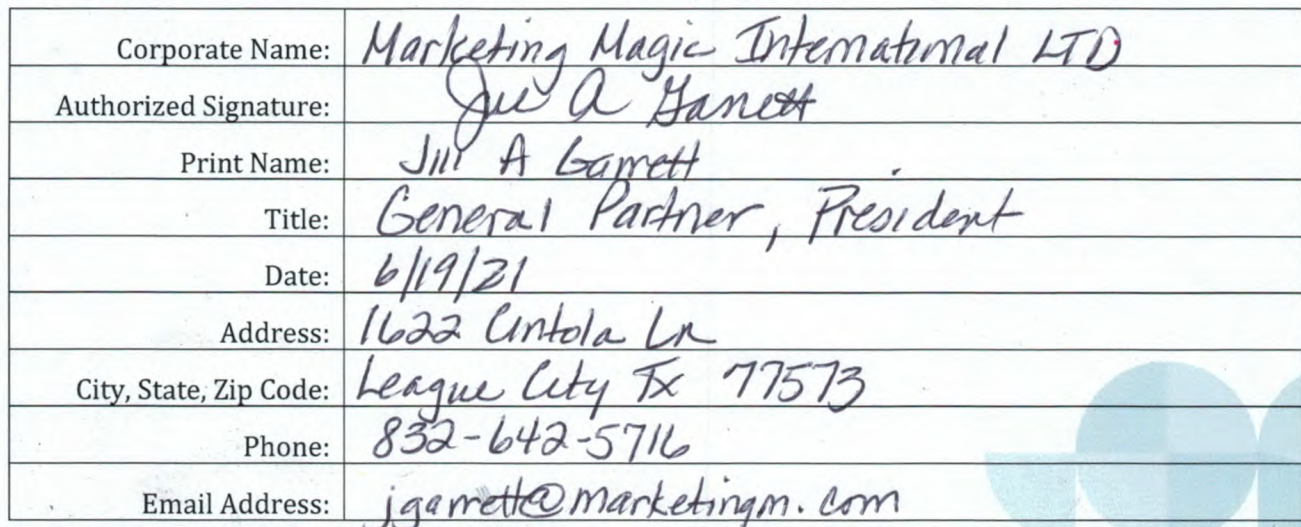 Corporate Name: Marketing Magic International LTD
Authorized Signature: Jill A Garrett
Print Name: Jill A Garrett
Title: General Partner, President
Date: 6/19/21
Address: 1622 Lntola Ln
City, State, Zip Code: League City Tx 77573
Phone: 832-642-5716
Email Address: jgarrett@marketingm.com